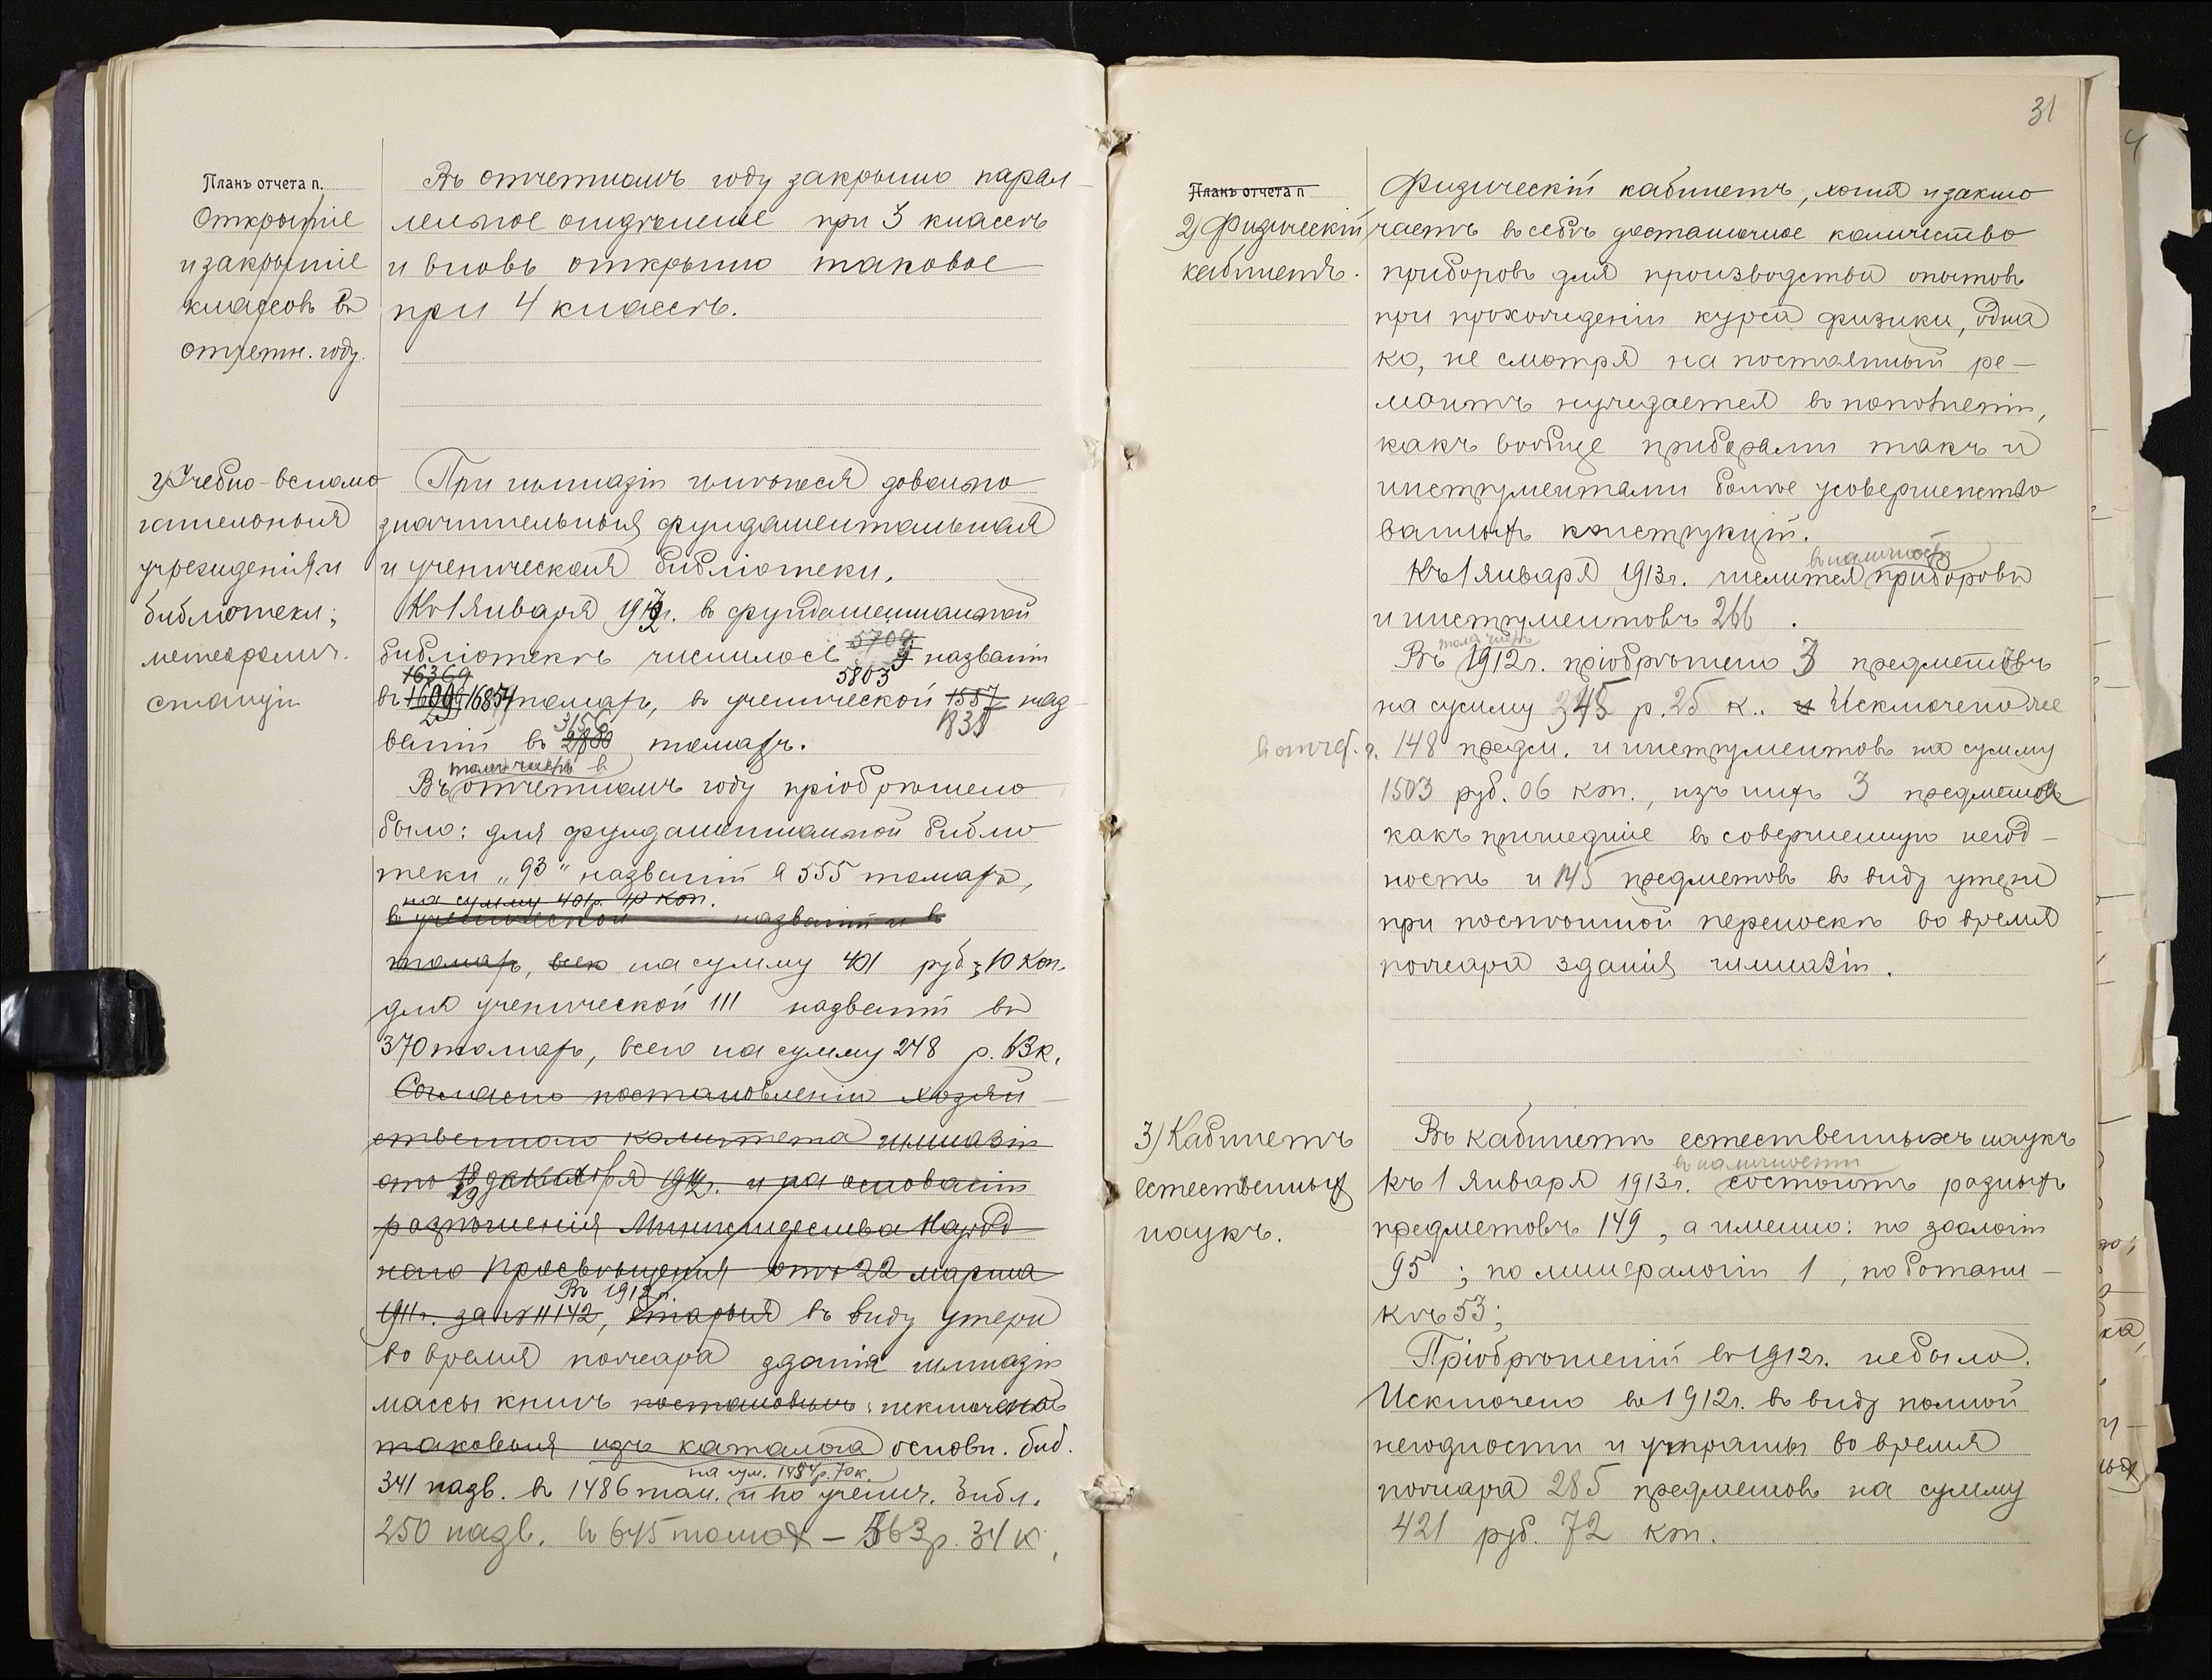 Планъ отчета п.
Открытіе
и закрытіе
классовъ въ
отчетн. году.
Въ отчетномъ году закрыто парал-
лельное отдѣленіе при 3 классѣ
и вновь открыто таковое
при 4 классѣ.
2) Учебно-вспомо
гательныя
учрежденія и
библіотеки;
метеоролич.
станціи
При гимназіи имѣются довольно
значительныя фундаментальная
и ученическая библіотеки.
Къ 1 Января 1912г. въ фундаментальной
библіотекѣ числилось 5709 названій
16369 5803
въ 16854 томахъ, въ ученической 1557 наз-
3156 1835
ваній въ 2880 томахъ.
томъ числѣ в
Въ отчетномъ году пріобрѣтено
было: для фундаментальной библіо
теки „93" названій в 555 томахъ,
на сумму 401р. 10 коп.
въ ученической названій и въ
томахъ, всего на сумму 401 руб; 10 коп.
для ученической 111 названій въ
370 томахъ, всего на сумму 248 р. 13к.
Согласно постановленія хозяй-
ственнаго комитета гимназіи
отъ 29 декабря 1912г. и на основаніи
разъясненія Министерства Народ
наго Просвѣщенія отъ 22 марта
Въ 1912г.
1911г. за № 11142, старыя въ виду утери
во время пожара зданія гимназіи
массы книгъ постановлено: исключено
таковыя изъ каталога основн. биб.
на сум. 1484р. 70к.
341 назв. въ 1486 том. и по ученич. библ.
250 назв. в 645 томах – 563р. 34 к.
31
Планъ отчета п
2) Физическій
кабинетъ.
Физическій кабинетъ, хотя и заклю
чаетъ въ себѣ достаточное количество
приборовъ для производства опытовъ
при прохожденіи курса физики, одна
ко, не смотря на постоянный ре-
монтъ нуждается въ пополненіи,
какъ вообще приборами такъ и
инструментами болѣе усовершенство
ванныхъ конструкцій.
въ наличности
Къ 1 Января 1913г. числится приборовъ
и инструментовъ 266 .
томъ числѣ
Въ 1912г. пріобрѣтено 3 предметовъ
на сумму 345 р. 25 к.. и Исключено же
в отчет. г. 148 предм. и инструментовъ на сумму
1503 руб. 06 коп., изъ нихъ 3 предмета
какъ пришедшіе въ совершенную негод-
ность и 145 предметовъ въ виду утери
при поспѣшной переноскѣ во время
пожара зданія гимназіи.
3) Кабинетъ
естественныхъ
наукъ.
Въ кабинетѣ естественныхъ наукъ
въ наличности
къ 1 Января 1913г. состоитъ разныхъ
предметовъ 149, а именно: по зоологіи
95 ; по минералогіи 1 , по ботани-
кѣ 53;
Пріобрѣтеній въ 1912г. не было.
Исключено въ 1912г. въ виду полной
негодности и утраты во время
пожара 285 предметовъ на сумму
421 руб. 72 коп.